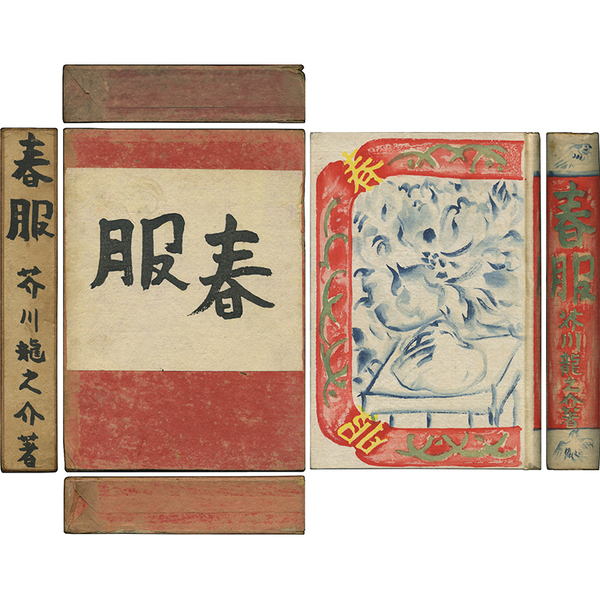 春服
芥川龍之介著
春服
春
服
春服
芥川龍之介著